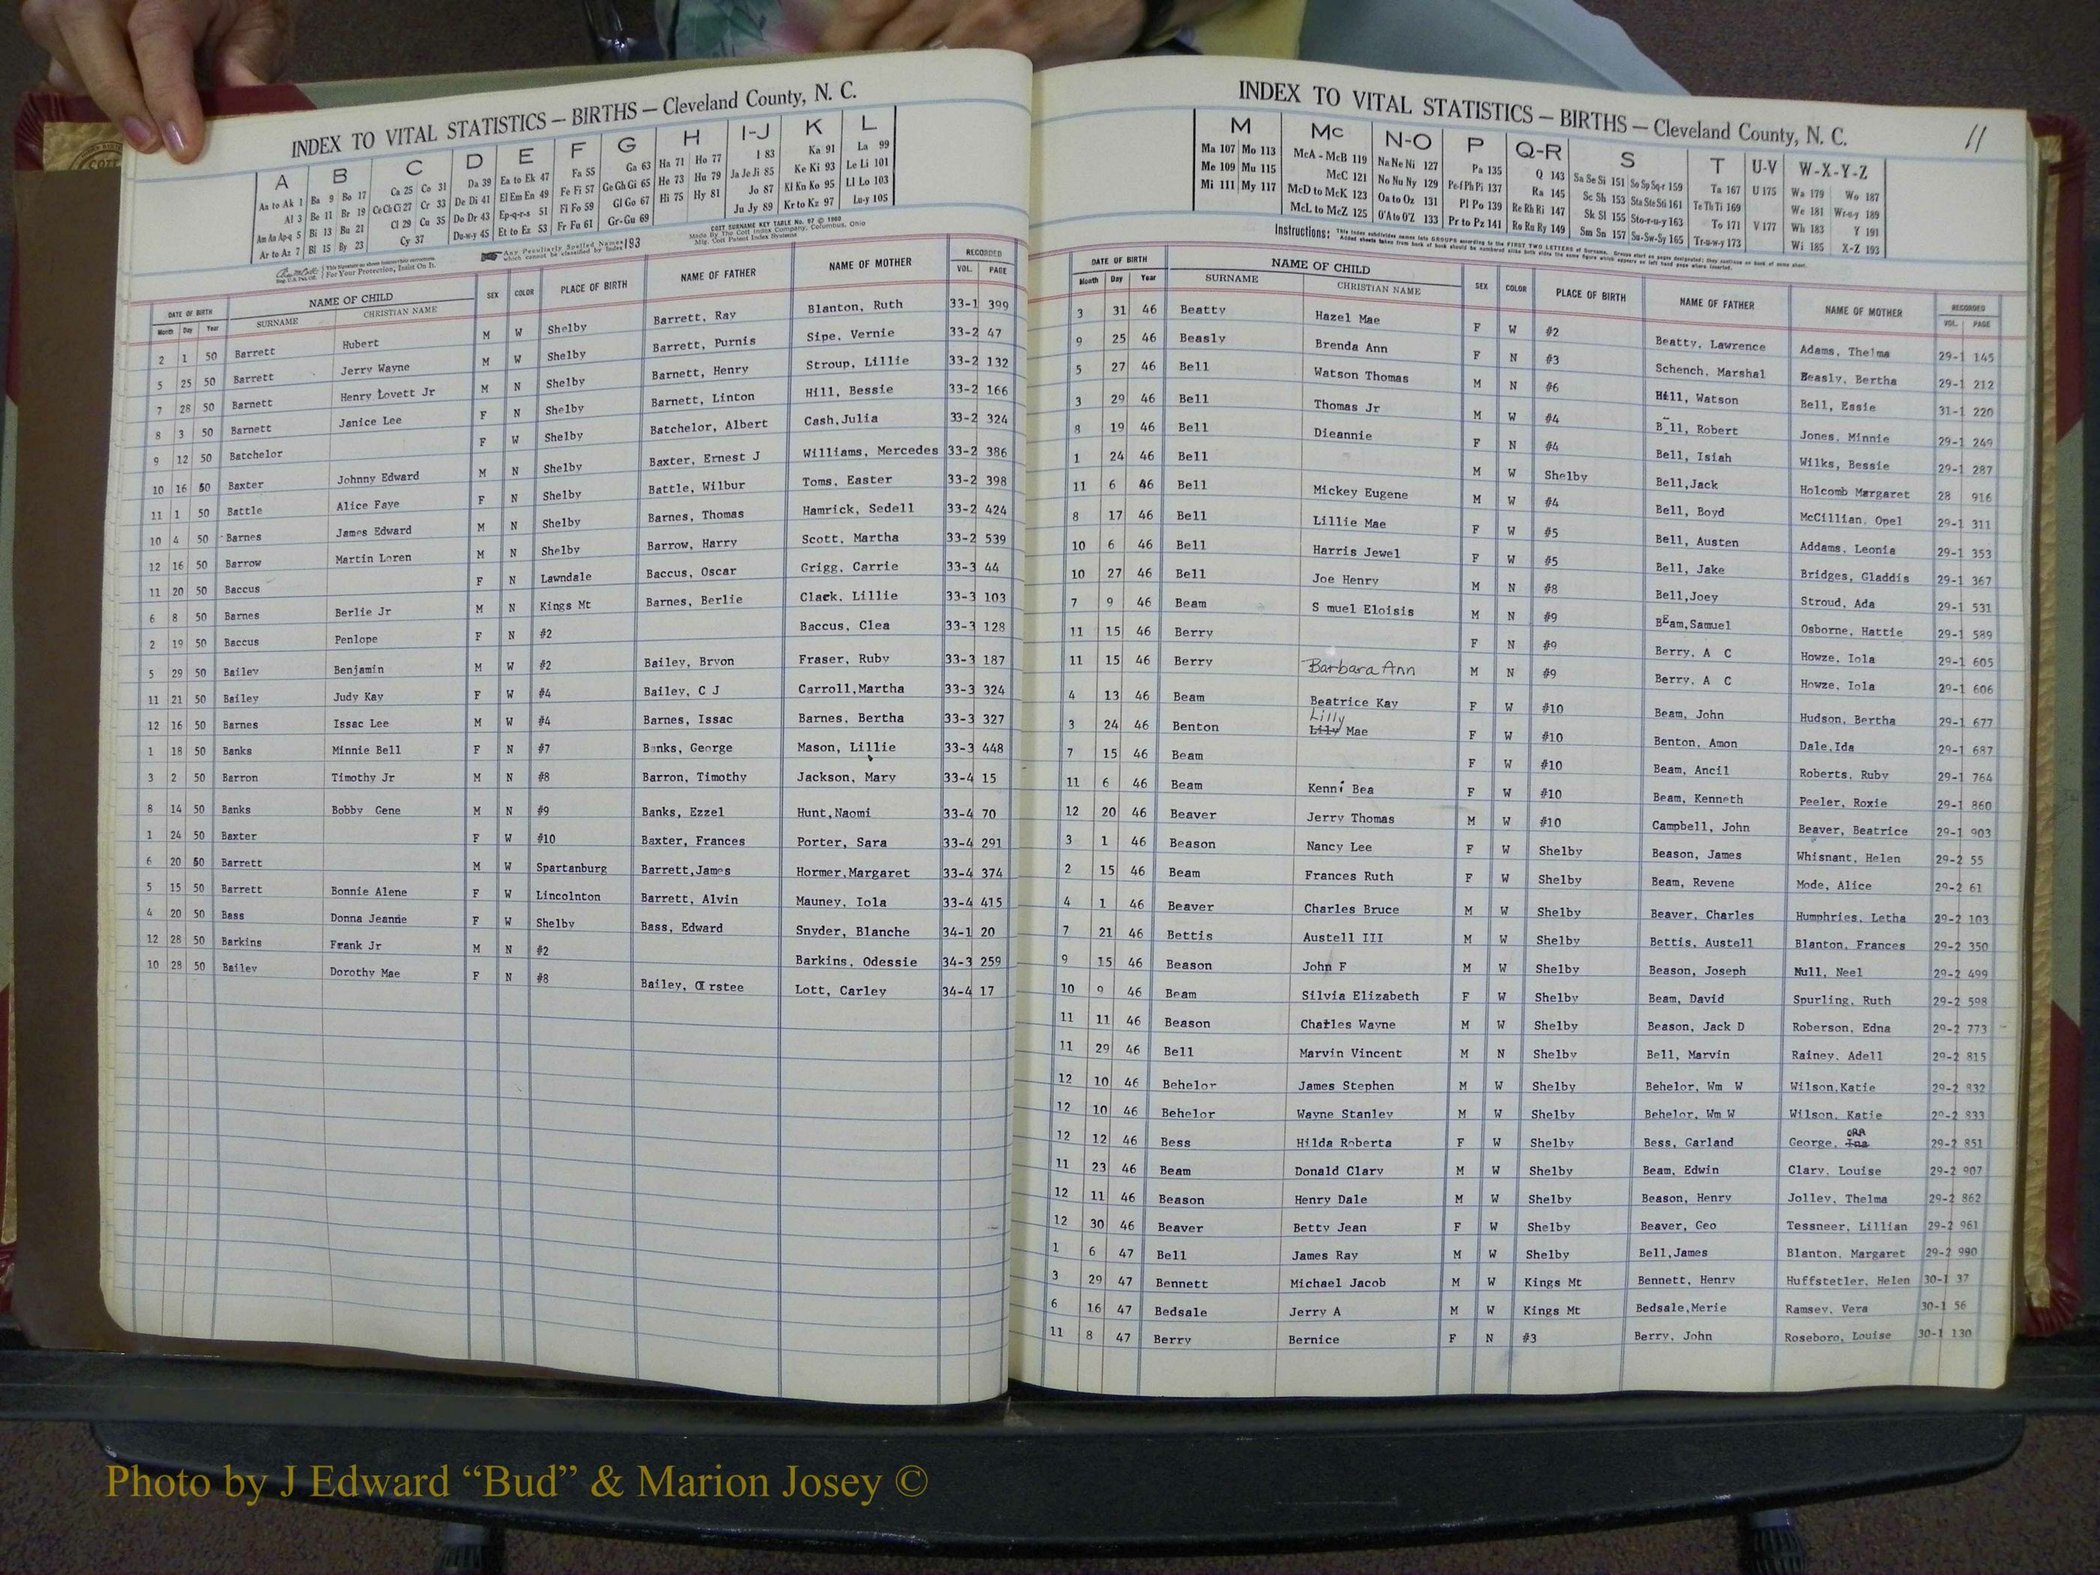 INDEX TO VITAL STATISTICS — BIRTHS — Cleveland County, N. C.
A B C D E F G H I-J K L
Aa to Ak 1 Ba 9 Bo 17 Ca 25 Co 31 Da 39 Ea to Ek 47 Fa 55 Ga 63 Ha 71 Ho 77 I 83 Ka 91 La 99
Al 3 Be 11 Br 19 Ce Ch Ci 27 Cr 33 De Di 41 El Em En 49 Fe Fi 57 Ge Gh Gi 65 He 73 Hu 79 Ja Je Ji 85 Ke Ki 93 Le Li 101
Am An Ap-q 5 Bi 13 Bu 21 Cl 29 Cu 35 Do Dr 43 Ep-q-r-s 51 Fl Fo 59 Gl Go 67 Hi 75 Hy 81 Jo 87 Kl Kn Ko 95 Ll Lo 103
Ar to Az 7 Bl 15 By 23 Cy 37 Du-w-y 45 Et to Ez 53 Fr Fu 61 Gr-Gu 69 Ju Jy 89 Kr to Kz 97 Lu-y 105
Any Peculiarly Spelled Names which cannot be classified by Index 193
COTT SURNAME KEY TABLE No. 97 © 1960
Made by The Cott Index Company, Columbus, Ohio
For Your Protection, Insist On It.
DATE OF BIRTH NAME OF CHILD SEX COLOR PLACE OF BIRTH NAME OF FATHER NAME OF MOTHER RECORDED
Month Day Year SURNAME CHRISTIAN NAME VOL. PAGE
2 1 50 Barrett Hubert M W Shelby Barrett, Ray Blanton, Ruth 33-1 399
5 25 50 Barrett Jerry Wayne M W Shelby Barrett, Purnis Sipe, Vernie 33-2 47
7 28 50 Barnett Henry Lovett Jr M N Shelby Barnett, Henry Stroup, Lillie 33-2 132
8 3 50 Barnett Janice Lee F N Shelby Barnett, Linton Hill, Bessie 33-2 166
9 12 50 Batchelor F W Shelby Batchelor, Albert Cash,Julia 33-2 324
10 16 50 Baxter Johnny Edward M N Shelby Baxter, Ernest J Williams, Mercedes 33-2 386
11 1 50 Battle Alice Faye F N Shelby Battle, Wilbur Toms, Easter 33-2 398
10 4 50 Barnes James Edward M N Shelby Barnes, Thomas Hamrick, Sedell 33-2 424
12 16 50 Barrow Martin Loren M N Shelby Barrow, Harry Scott, Martha 33-2 539
11 20 50 Baccus F N Lawndale Baccus, Oscar Grigg, Carrie 33-3 44
6 8 50 Barnes Berlie Jr M N Kings Mt Barnes, Berlie Clack, Lillie 33-3 103
2 19 50 Baccus Penlope F N #2 Baccus, Clea 33-3 128
5 29 50 Bailey Benjamin M W #2 Bailey, Bryon Fraser, Ruby 33-3 187
11 21 50 Bailey Judy Kay F W #4 Bailey, C J Carroll,Martha 33-3 324
12 16 50 Barnes Issac Lee M W #4 Barnes, Issac Barnes, Bertha 33-3 327
1 18 50 Banks Minnie Bell F N #7 Banks, George Mason, Lillie 33-3 448
3 2 50 Barron Timothy Jr M N #8 Barron, Timothy Jackson, Mary 33-4 15
8 14 50 Banks Bobby Gene M N #9 Banks, Ezzel Hunt,Naomi 33-4 70
1 24 50 Baxter F W #10 Baxter, Frances Porter, Sara 33-4 291
6 20 50 Barrett M W Spartanburg Barrett,James Hormer,Margaret 33-4 374
5 15 50 Barrett Bonnie Alene F W Lincolnton Barrett, Alvin Mauney, Iola 33-4 415
4 20 50 Bass Donna Jeanne F W Shelby Bass, Edward Snyder, Blanche 34-1 20
12 28 50 Barkins Frank Jr M N #2 Barkins, Odessie 34-3 259
10 28 50 Bailey Dorothy Mae F N #8 Bailey, rstee Lott, Carley 34-4 17
11
INDEX TO VITAL STATISTICS — BIRTHS — Cleveland County, N. C.
M Mc N-O P Q-R S T U-V W-X-Y-Z
Ma 107 Mo 113 McA - McB 119 Na Ne Ni 127 Pa 135 Q 143 Sa Se Si 151 So Sp Sq-r 159 Ta 167 U 175 Wa 179 Wo 187
Me 109 Mu 115 McC 121 No Nu Ny 129 Pe-f Ph Pi 137 Ra 145 Sc Sh 153 Sta Ste Sti 161 Te Th Ti 169 We 181 Wr-u-y 189
Mi 111 My 117 McD to McK 123 Oa to Oz 131 Pl Po 139 Re Rh Ri 147 Sk Sl 155 Sto-r-u-y 163 To 171 V 177 Wh 183 Y 191
McL to McZ 125 O'A to O'Z 133 Pr to Pz 141 Ro Ru Ry 149 Sm Sn 157 Su-Sw-Sy 165 Tr-u-w-y 173 Wi 185 X-Z 193
Instructions: This index subdivides names into GROUPS according to the FIRST TWO LETTERS of Surname. Groups start on pages designated; they continue on back of same sheet.
Added sheets taken from back of book should be numbered alike both sides the same figure which appears on left hand page where inserted.
DATE OF BIRTH NAME OF CHILD SEX COLOR PLACE OF BIRTH NAME OF FATHER NAME OF MOTHER RECORDED
Month Day Year SURNAME CHRISTIAN NAME VOL. PAGE
3 31 46 Beatty Hazel Mae F W #2 Beatty, Lawrence Adams, Thelma 29-1 145
9 25 46 Beasly Brenda Ann F N #3 Schench, Marshal Beasly, Bertha 29-1 212
5 27 46 Bell Watson Thomas M N #6 Hill, Watson Bell, Essie 31-1 220
3 29 46 Bell Thomas Jr M W #4 Bell, Robert Jones, Minnie 29-1 249
8 19 46 Bell Dieannie F N #4 Bell, Isiah Wilks, Bessie 29-1 287
1 24 46 Bell M W Shelby Bell,Jack Holcomb Margaret 28 916
11 6 46 Bell Mickey Eugene M W #4 Bell, Boyd McCillian, Opel 29-1 311
8 17 46 Bell Lillie Mae F W #5 Bell, Austen Addams, Leonia 29-1 353
10 6 46 Bell Harris Jewel F W #5 Bell, Jake Bridges, Gladdis 29-1 367
10 27 46 Bell Joe Henry M N #8 Bell,Joey Stroud, Ada 29-1 531
7 9 46 Beam S muel Eloisis M N #9 Beam,Samuel Osborne, Hattie 29-1 589
11 15 46 Berry F N #9 Berry, A C Howze, Iola 29-1 605
11 15 46 Berry Barbara Ann M N #9 Berry, A C Howze, Iola 29-1 606
4 13 46 Beam Beatrice Kay F W #10 Beam, John Hudson, Bertha 29-1 677
3 24 46 Benton Lilly Lily Mae F W #10 Benton, Amon Dale,Ida 29-1 687
7 15 46 Beam F W #10 Beam, Ancil Roberts, Ruby 29-1 764
11 6 46 Beam Kenni Bea F W #10 Beam, Kenneth Peeler, Roxie 29-1 860
12 20 46 Beaver Jerry Thomas M W #10 Campbell, John Beaver, Beatrice 29-1 903
3 1 46 Beason Nancy Lee F W Shelby Beason, James Whisnant, Helen 29-2 55
2 15 46 Beam Frances Ruth F W Shelby Beam, Revene Mode, Alice 29-2 61
4 1 46 Beaver Charles Bruce M W Shelby Beaver, Charles Humphries, Letha 29-2 103
7 21 46 Bettis Austell III M W Shelby Bettis, Austell Blanton, Frances 29-2 350
9 15 46 Beason John F M W Shelby Beason, Joseph Null, Neel 29-2 499
10 9 46 Beam Silvia Elizabeth F W Shelby Beam, David Spurling, Ruth 29-2 598
11 11 46 Beason Charles Wayne M W Shelby Beason, Jack D Roberson, Edna 29-2 773
11 29 46 Bell Marvin Vincent M N Shelby Bell, Marvin Rainey, Adell 29-2 815
12 10 46 Behelor James Stephen M W Shelby Behelor, Wm W Wilson,Katie 29-2 832
12 10 46 Behelor Wayne Stanley M W Shelby Behelor, Wm W Wilson, Katie 29-2 833
12 12 46 Bess Hilda Roberta F W Shelby Bess, Garland George, Ina ORA 29-2 851
11 23 46 Beam Donald Clary M W Shelby Beam, Edwin Clary, Louise 29-2 907
12 11 46 Beason Henry Dale M W Shelby Beason, Henry Jolley, Thelma 29-2 862
12 30 46 Beaver Betty Jean F W Shelby Beaver, Geo Tessneer, Lillian 29-2 961
1 6 47 Bell James Ray M W Shelby Bell,James Blanton, Margaret 29-2 990
3 29 47 Bennett Michael Jacob M W Kings Mt Bennett, Henry Huffstetler, Helen 30-1 37
6 16 47 Bedsale Jerry A M W Kings Mt Bedsale,Merie Ramsey, Vera 30-1 56
11 8 47 Berry Bernice F N #3 Berry, John Roseboro, Louise 30-1 130
Photo by J Edward “Bud” & Marion Josey ©